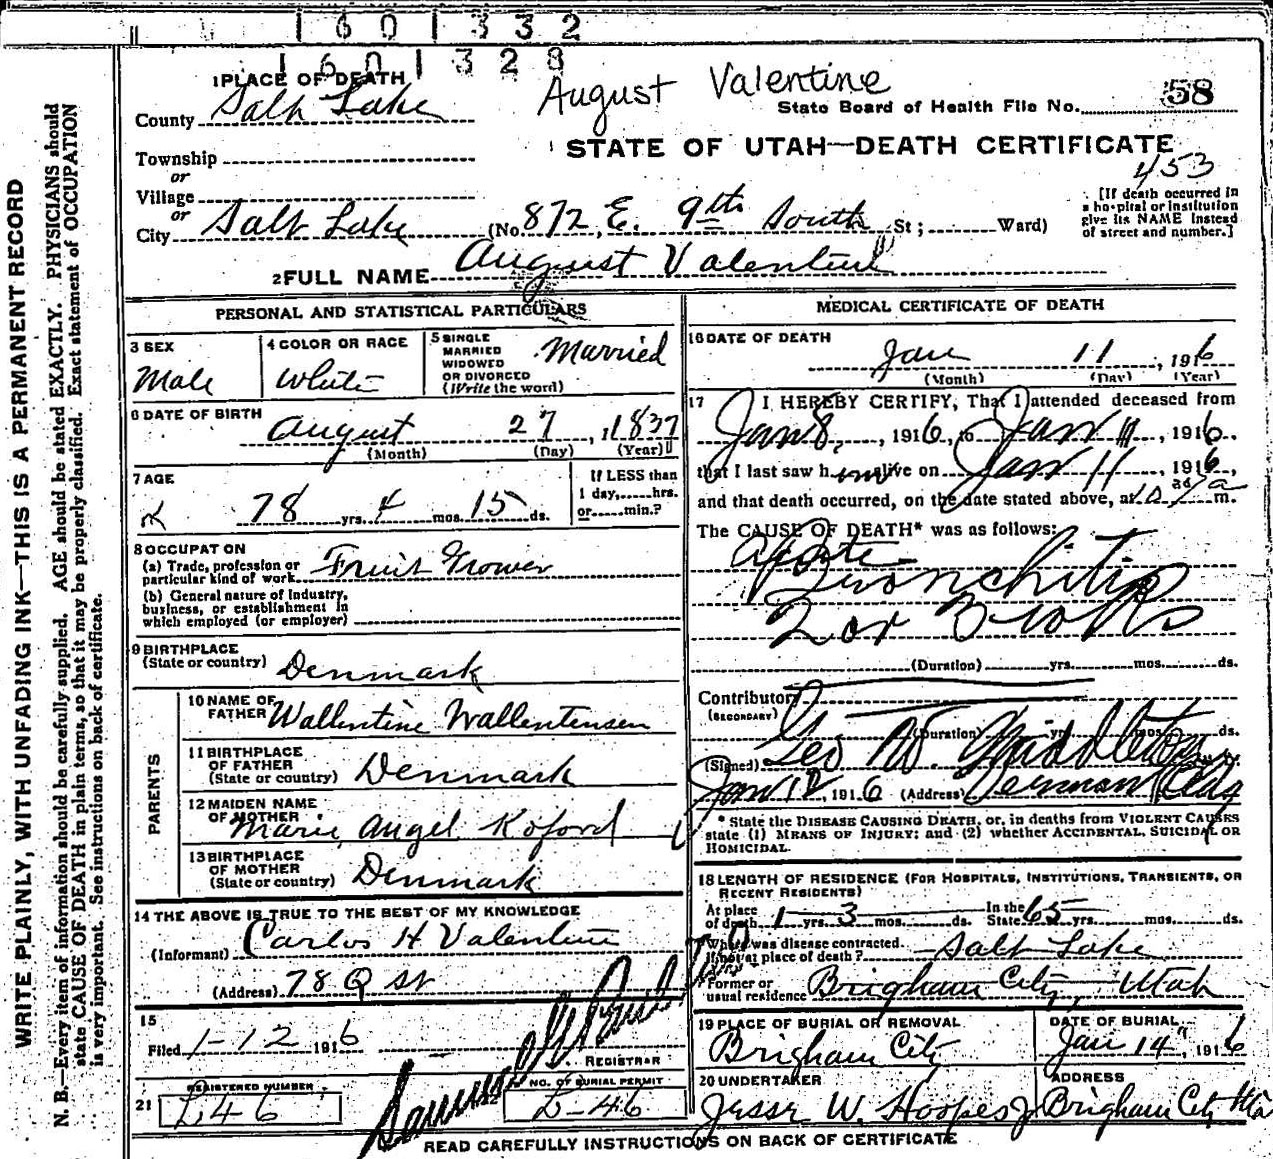 1 6 0 1 3 3 2
1 6 0 1 3 2 8
1 PLACE OF DEATH
August Valentine
County Salt Lake
State Board of Health File No. 58
Township
STATE OF UTAH—DEATH CERTIFICATE
453
or
Village
or
City Salt Lake (No. 872, E. 9th South St; Ward)
[If death occurred in
a hospital or institution
give its NAME instead
of street and number.]
2 FULL NAME August Valentine
PERSONAL AND STATISTICAL PARTICULARS
3 SEX
Male
4 COLOR OR RACE
White
5 SINGLE
MARRIED
WIDOWED
OR DIVORCED
(Write the word)
Married
6 DATE OF BIRTH
August 27, 1837
(Month) (Day) (Year)
7 AGE
78 yrs. 4 mos. 15 ds.
If LESS than
1 day, hrs.
or min.?
8 OCCUPATION
(a) Trade, profession or
particular kind of work Fruit Grower
(b) General nature of industry,
business, or establishment in
which employed (or employer)
9 BIRTHPLACE
(State or country) Denmark
PARENTS
10 NAME OF
FATHER Wallentine Wallentensen
11 BIRTHPLACE
OF FATHER
(State or country) Denmark
12 MAIDEN NAME
OF MOTHER
Marie Angel Koford
13 BIRTHPLACE
OF MOTHER
(State or country) Denmark
14 THE ABOVE IS TRUE TO THE BEST OF MY KNOWLEDGE
(Informant) Carlos H Valentine
(Address) 78 Q St
15
Filed 1-12 1916
REGISTRAR
21
REGISTERED NUMBER
L46
NO. OF BURIAL PERMIT
L-46
MEDICAL CERTIFICATE OF DEATH
16 DATE OF DEATH
Jan 11, 1916
(Month) (Day) (Year)
17 I HEREBY CERTIFY, That I attended deceased from
Jan 8, 1916, to Jan 11, 1916.
that I last saw him alive on Jan 11, 1916,
and that death occurred, on the date stated above, at m.
The CAUSE OF DEATH* was as follows:
Bronchitis
(Duration) yrs. mos. ds.
Contributory
(SECONDARY)
(Duration) yrs. mos. ds.
(Signed) Geo W. Middleton
Jan 12, 1916 (Address)
* State the DISEASE CAUSING DEATH, or, in deaths from VIOLENT CAUSES
state (1) MEANS OF INJURY; and (2) whether ACCIDENTAL, SUICIDAL OR
HOMICIDAL.
18 LENGTH OF RESIDENCE (FOR HOSPITALS, INSTITUTIONS, TRANSIENTS, OR
RECENT RESIDENTS)
At place
of death 1 yrs. 3 mos. ds.
In the
State 65 yrs. mos. ds.
Where was disease contracted
if not at place of death? Salt Lake
Former or
usual residence Brigham City, Utah
19 PLACE OF BURIAL OR REMOVAL
Brigham City
DATE OF BURIAL
Jan 14, 1916
20 UNDERTAKER
Jesse W. Hoopes Jr
ADDRESS
Brigham City Uta
READ CAREFULLY INSTRUCTIONS ON BACK OF CERTIFICATE
WRITE PLAINLY, WITH UNFADING INK—THIS IS A PERMANENT RECORD
N. B.—Every item of information should be carefully supplied. AGE should be stated EXACTLY. PHYSICIANS should
state CAUSE OF DEATH in plain terms, so that it may be properly classified. Exact statement of OCCUPATION
is very important. See instructions on back of certificate.